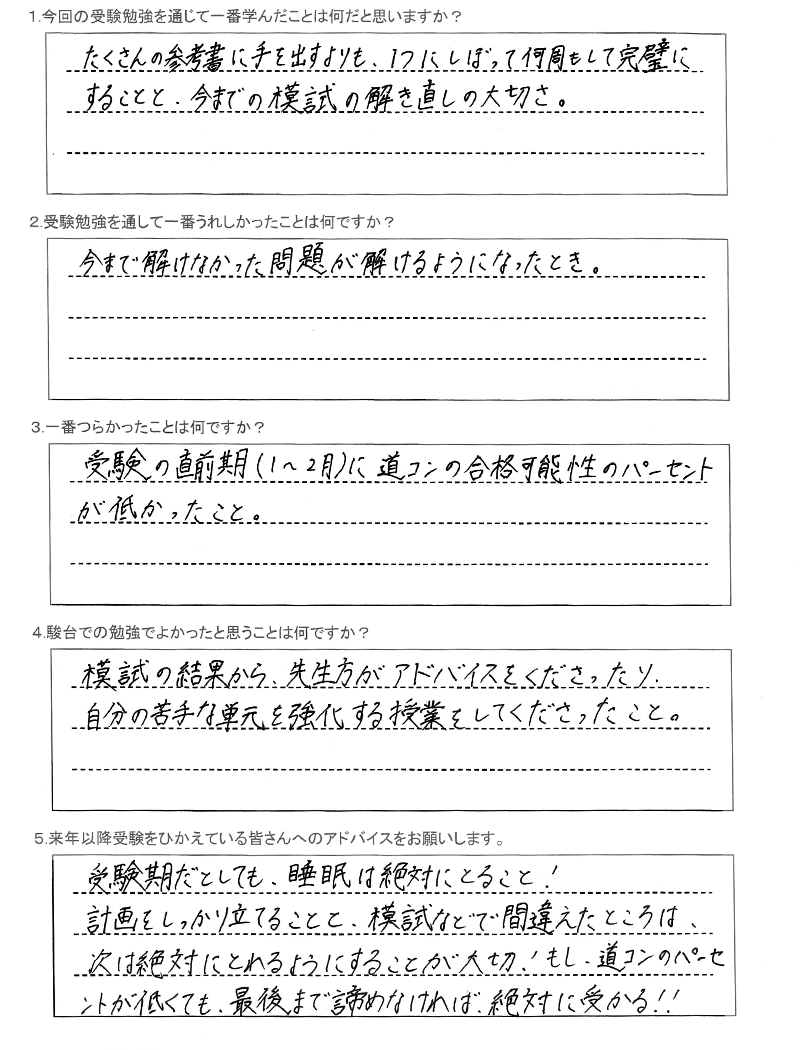 1.今回の受験勉強を通じて一番学んだことは何だと思いますか？
たくさんの参考書に手を出すよりも、1つにしぼって何周もして完璧に
することと、今までの模試の解き直しの大切さ。
2.受験勉強を通して一番うれしかったことは何ですか？
今まで解けなかった問題が解けるようになったとき。
3.一番つらかったことは何ですか？
受験の直前期(1～2月)に道コンの合格可能性のパーセント
が低かったこと。
4.駿台での勉強でよかったと思うことは何ですか？
模試の結果から、先生方がアドバイスをくださったり、
自分の苦手な単元を強化する授業をしてくださったこと。
5.来年以降受験をひかえている皆さんへのアドバイスをお願いします。
受験期だとしても、睡眠は絶対にとること！
計画をしっかり立てることと、模試などで間違えたところは、
次は絶対にとれるようにすることが大切！もし、道コンのパーセ
ントが低くても、最後まで諦めなければ、絶対に受かる！！